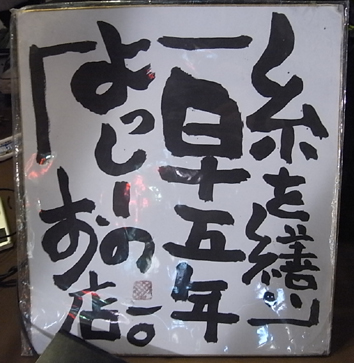 糸を繕い
百十五年
よっしーの
「お店。